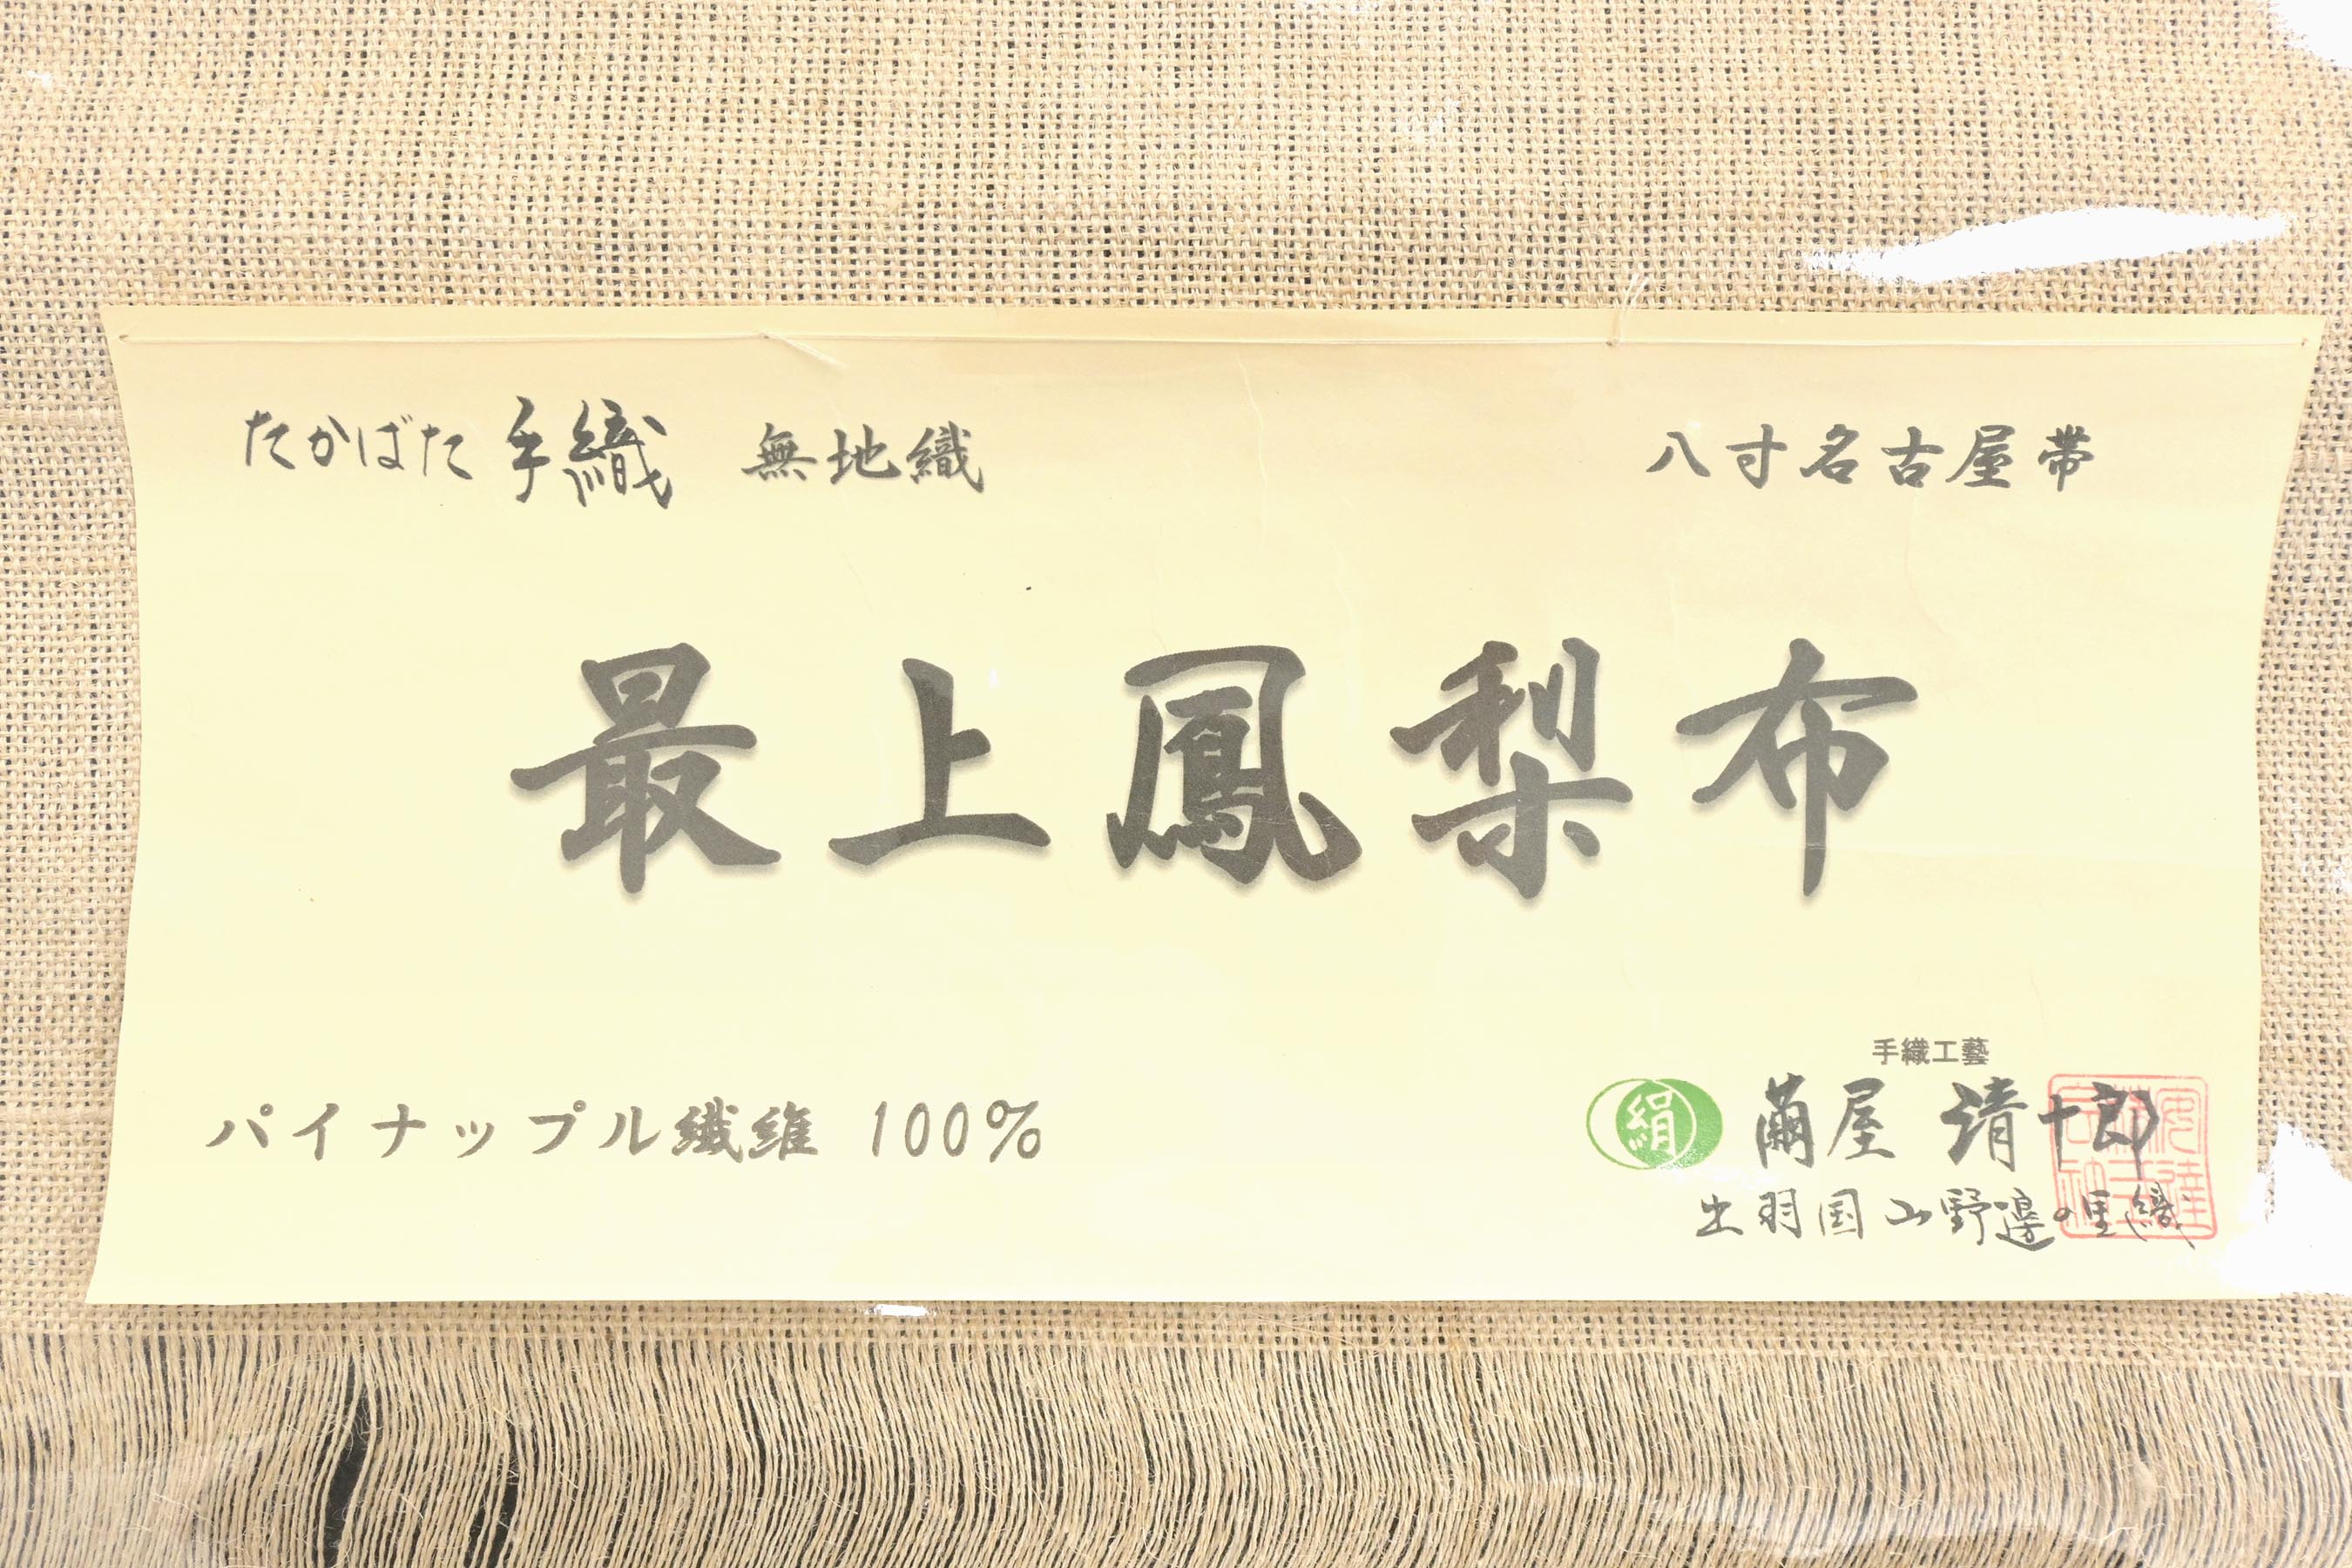 たかばた 手織 無地織
八寸名古屋帯
最上鳳梨布
パイナップル繊維 100%
手織工藝
絹
繭屋 清十郎
出羽国山野邊の里織